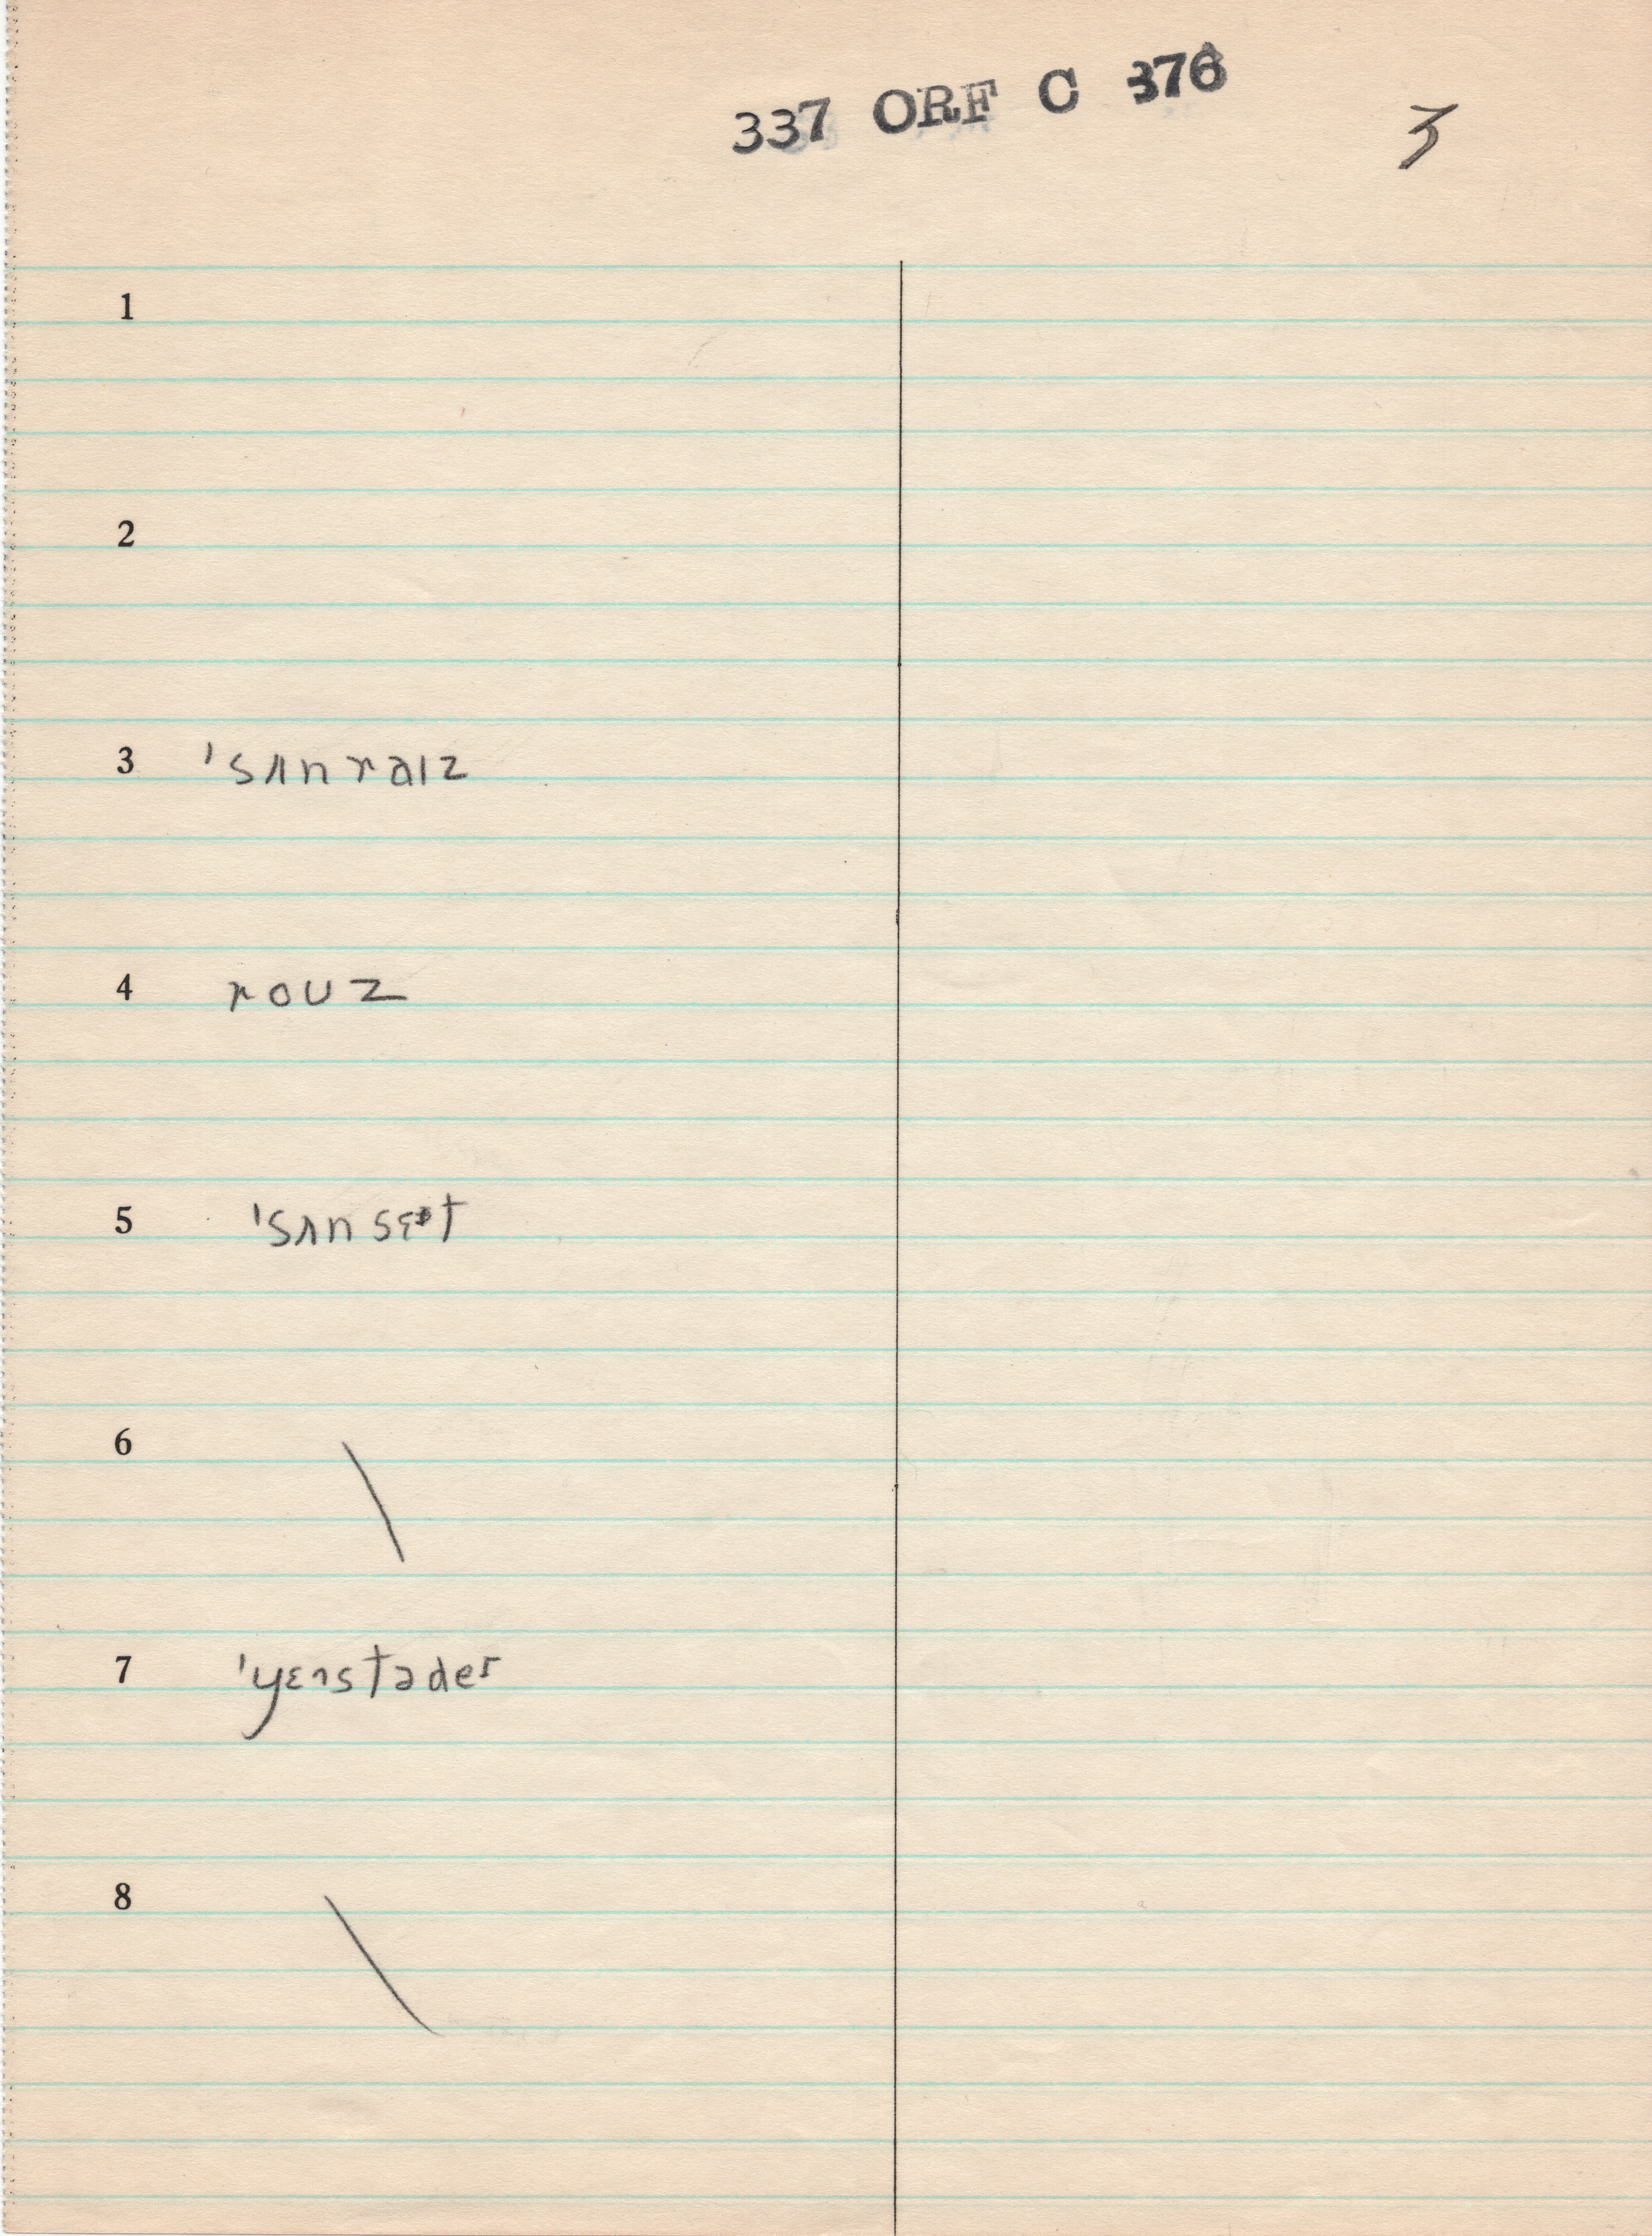 337 ORF C 376
3
1
2
3 'sʌnraɪz
4 roʊz
5 'sʌnsɛt
6 \
7 'yɛɪstədeɪ
8 \